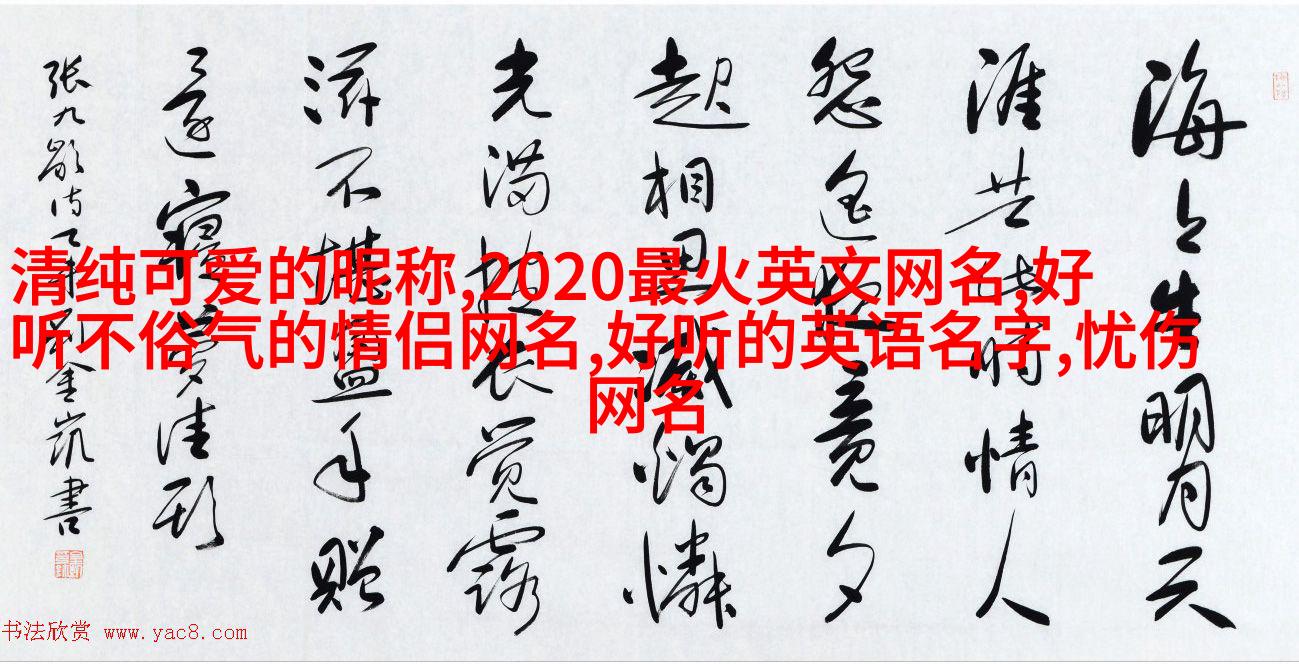 海上生明月天
涯共此时情人
怨遥夜竟夕
起相思滅燭憐
光满披衣觉露
滋不堪盈手赠
还寝梦佳期
张九龄诗一首金凯書
清纯可爱的昵称,2020最火英文网名,好
听不俗气的情侣网名,好听的英语名字,忧伤
网名
书法欣赏 www.yac8.com